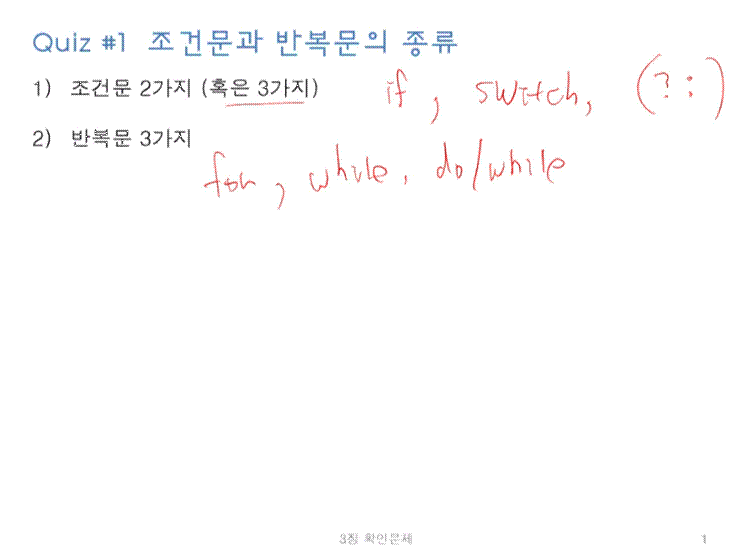 Quiz #1 조건문과 반복문의 종류
1) 조건문 2가지 (혹은 3가지) if, switch, (? :)
2) 반복문 3가지
for, while, do/while
3장 확인문제 1